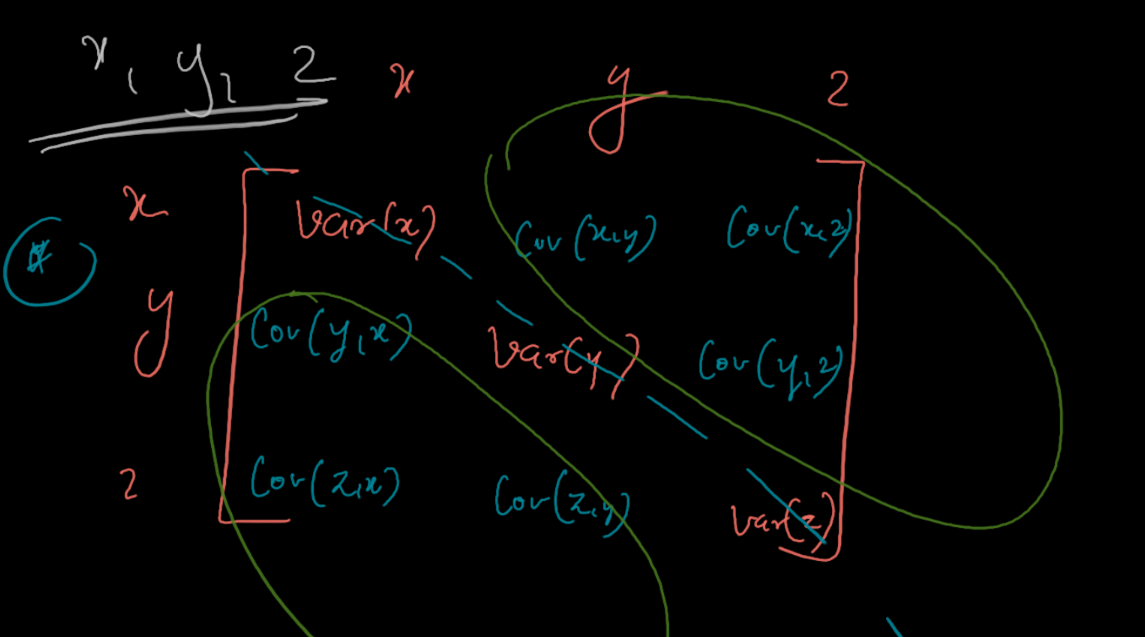 x, y, z
x y z
x var(x) Cov(x,y) Cov(x,z)
y Cov(y,x) var(y) Cov(y,z)
z Cov(z,x) Cov(z,y) var(z)